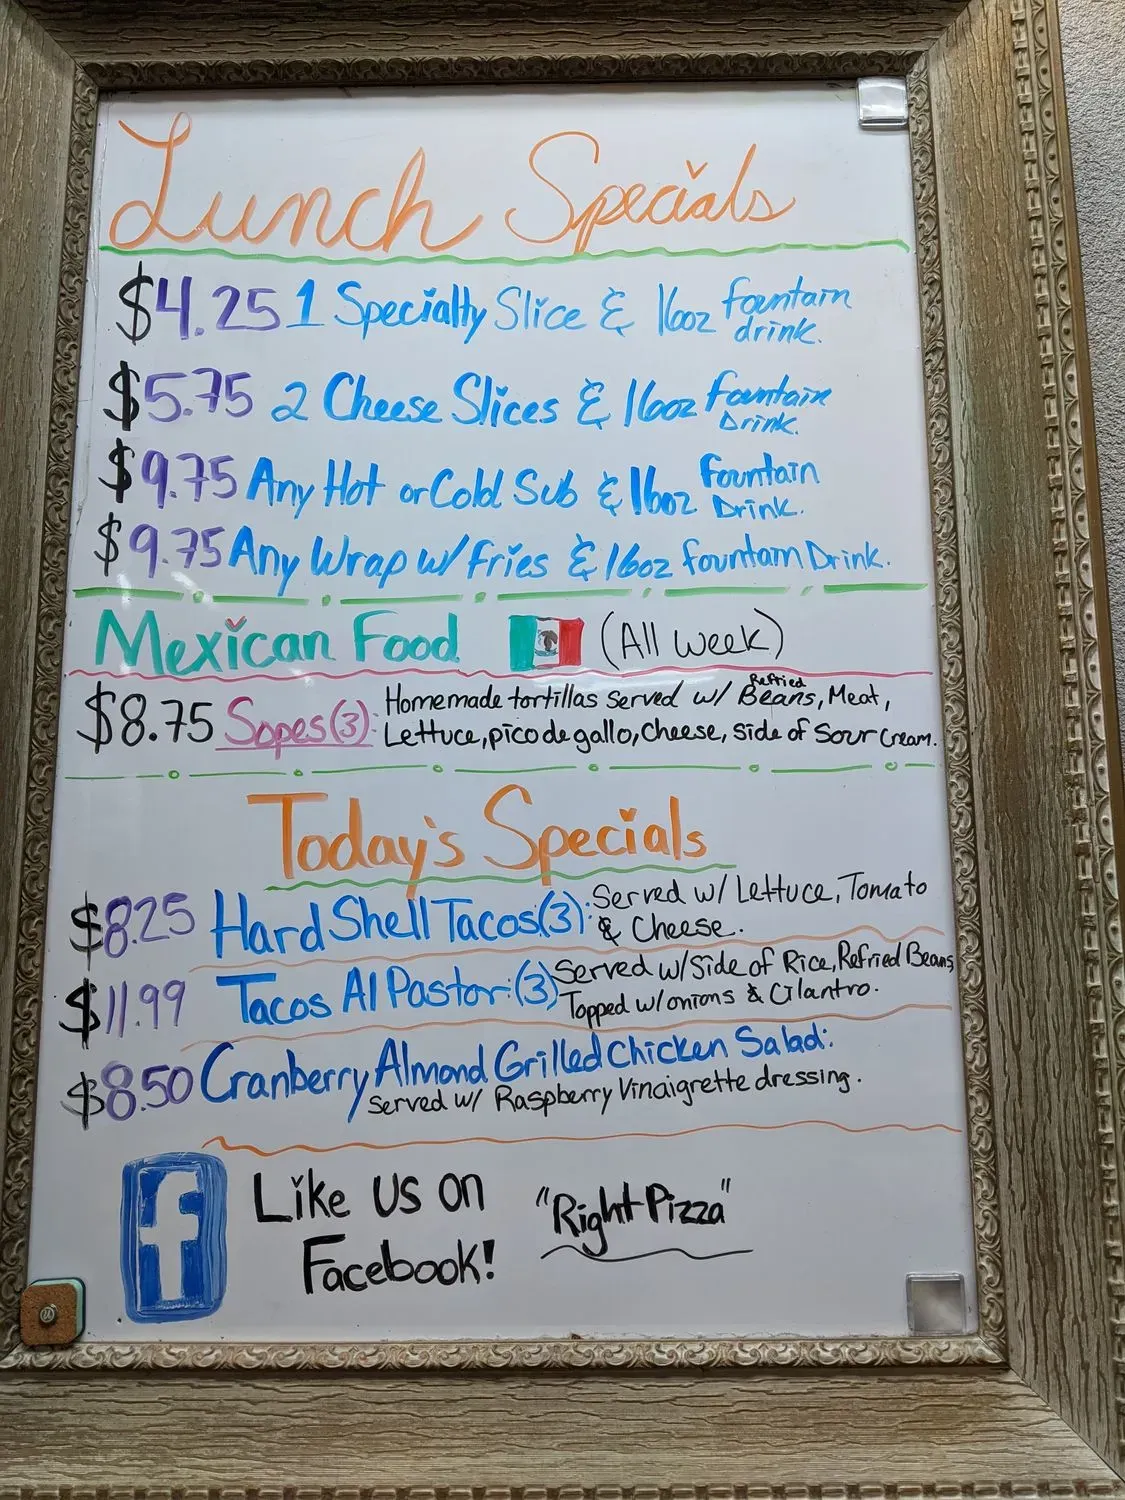 Lunch Specials
$4.25 1 Specialty Slice & 16oz fountain
drink.
$5.75 2 Cheese Slices & 16oz Fountain
Drink.
$9.75 Any Hot or Cold Sub & 16oz Fountain
Drink.
$9.75 Any Wrap w/ Fries & 16oz fountain Drink.
Mexican Food (All week)
$8.75 Sopes(3): Homemade tortillas served w/ Refried Beans, Meat,
Lettuce, pico de gallo, cheese, side of sour cream.
Today's Specials
$8.25 Hard Shell Tacos(3): Served w/ Lettuce, Tomato
& Cheese.
$11.99 Tacos Al Pastor:(3) Served w/ Side of Rice, Refried Beans,
Topped w/ onions & Cilantro.
$8.50 Cranberry Almond Grilled Chicken Salad:
Served w/ Raspberry Vinaigrette dressing.
f Like us on "Right Pizza"
Facebook!